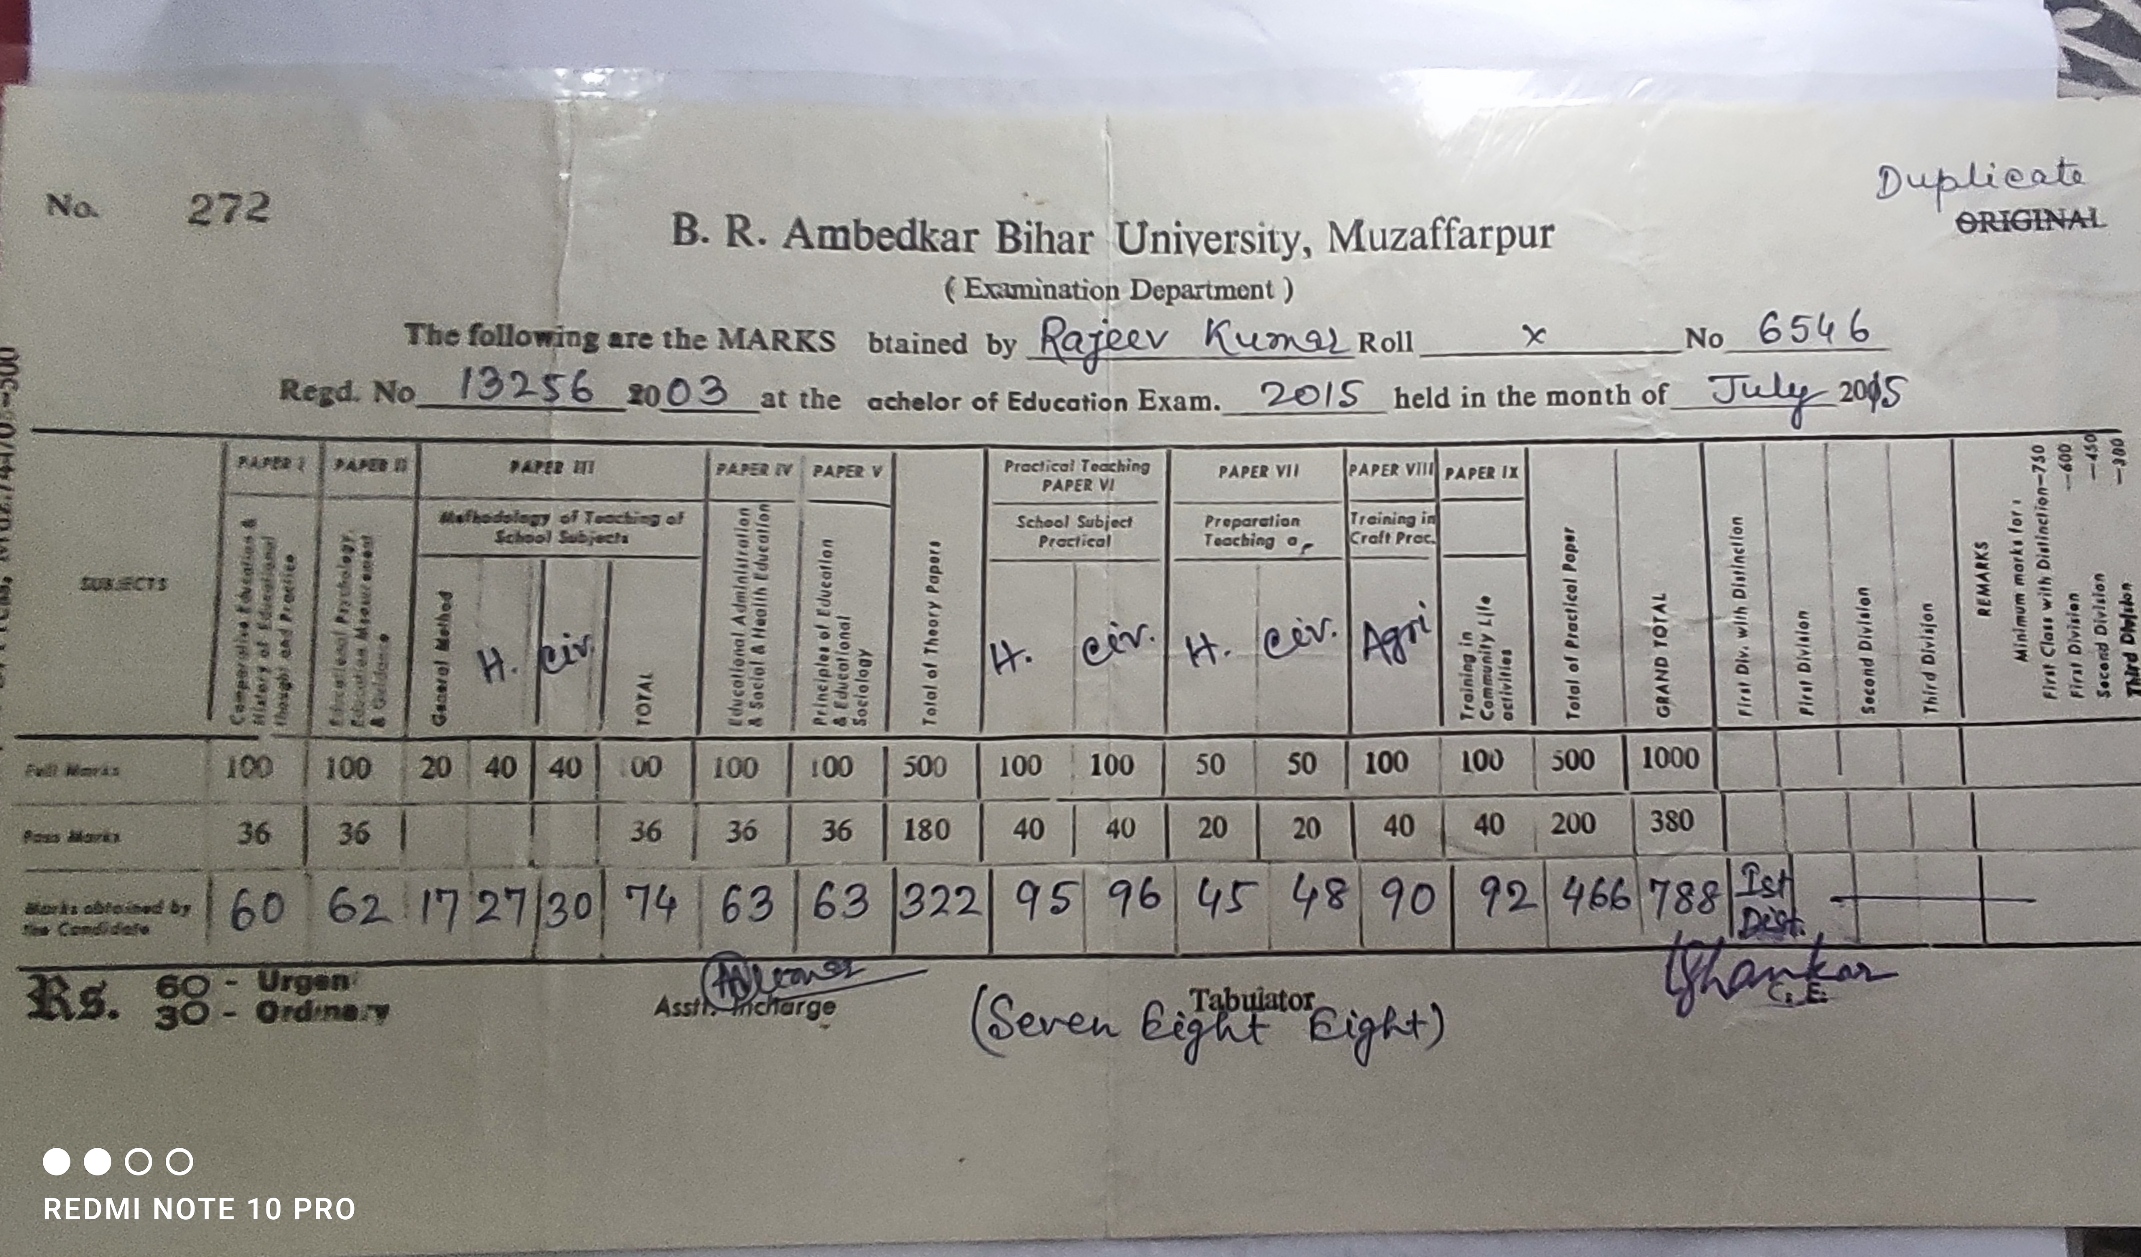 Duplicate
No. 272
ORIGINAL
B. R. Ambedkar Bihar University, Muzaffarpur
( Examination Department )
The following are the MARKS btained by Rajeev Kumar Roll x No 6546
Regd. No 13256 2003 at the achelor of Education Exam. 2015 held in the month of July 2015
SUBJECTS
PAPER I
Comparative Education &
History of Educational
Thought and Practice
PAPER II
Educational Psychology,
Education Measurement
& Guidance
PAPER III
Methodology of Teaching of
School Subjects
General Method
H.
civ.
TOTAL
PAPER IV
Educational Administration
& Social & Health Education
PAPER V
Principles of Education
& Educational
Sociology
Total of Theory Papers
Practical Teaching
PAPER VI
School Subject
Practical
H.
civ.
PAPER VII
Preparation
Teaching a
H.
civ.
PAPER VIII
Training in
Craft Prac.
Agri
PAPER IX
Training in
Community Life
activities
Total of Practical Paper
GRAND TOTAL
First Div. with Distinction
First Division
Second Division
Third Division
REMARKS
Minimum marks for :
First Class with Distinction—750
First Division —600
Second Division —450
Third Division
Full Marks 100 100 20 40 40 00 100 100 500 100 100 50 50 100 100 500 1000
Pass Marks 36 36 36 36 36 180 40 40 20 20 40 40 200 380
Marks obtained by
the Candidate 60 62 17 27 30 74 63 63 322 95 96 45 48 90 92 466 788 Ist
Dist.
Rs. 60 - Urgen
30 - Ordinary
Asstt. Incharge
Tabulator
C. E.
(Seven Eight Eight)
REDMI NOTE 10 PRO